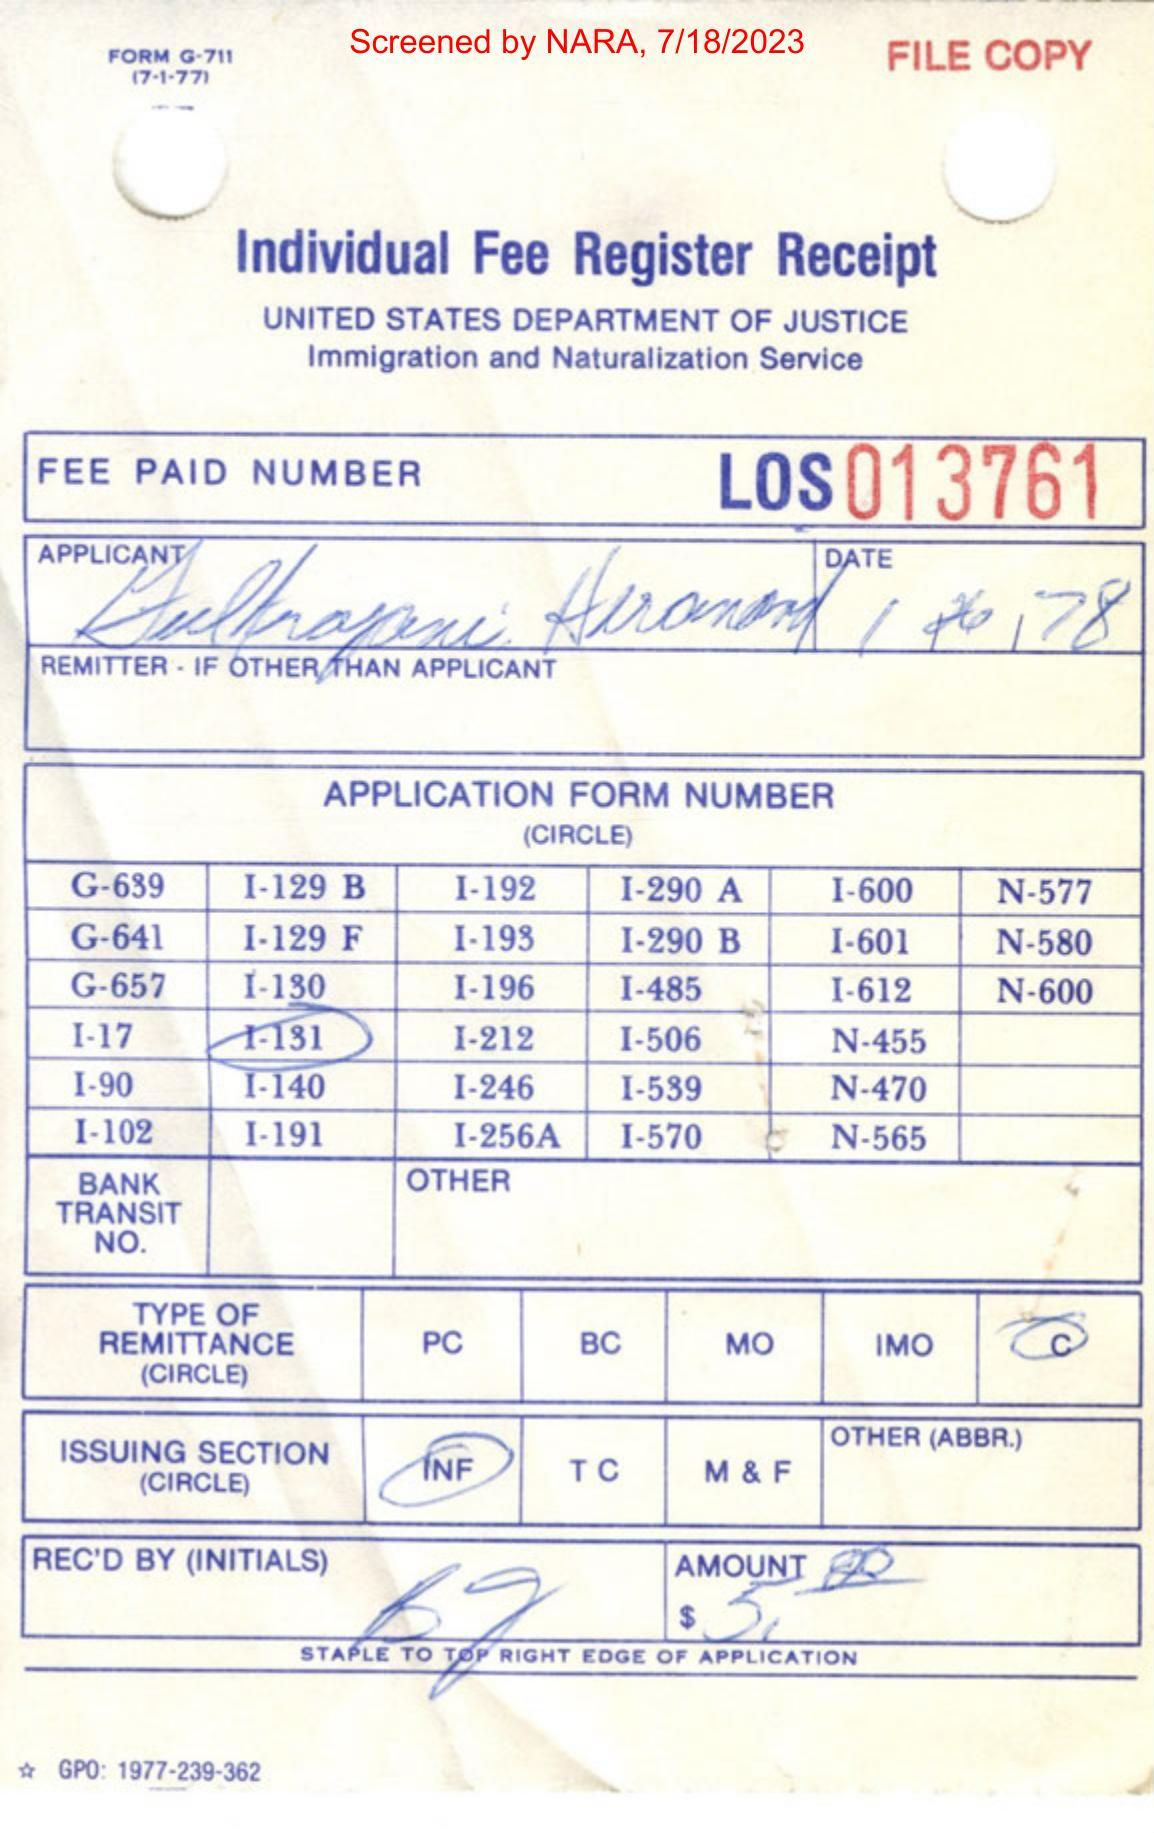 Screened by NARA, 7/18/2023
FORM G-711
(7-1-77)
FILE COPY
Individual Fee Register Receipt
UNITED STATES DEPARTMENT OF JUSTICE
Immigration and Naturalization Service
FEE PAID NUMBER LOS 013761
APPLICANT DATE
Hiranand 1 26 78
REMITTER - IF OTHER THAN APPLICANT
APPLICATION FORM NUMBER
(CIRCLE)
G-639 I-129 B I-192 I-290 A I-600 N-577
G-641 I-129 F I-193 I-290 B I-601 N-580
G-657 I-130 I-196 I-485 I-612 N-600
I-17 I-131 I-212 I-506 N-455
I-90 I-140 I-246 I-539 N-470
I-102 I-191 I-256A I-570 N-565
BANK TRANSIT NO. OTHER
TYPE OF REMITTANCE (CIRCLE) PC BC MO IMO C
ISSUING SECTION (CIRCLE) INF T C M & F OTHER (ABBR.)
REC'D BY (INITIALS) AMOUNT
$ 5.00
STAPLE TO TOP RIGHT EDGE OF APPLICATION
☆ GPO: 1977-239-362